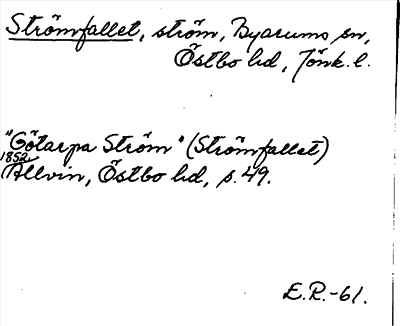 Strömfallet, ström, Byarums sn,
Östbo hd, Jönk. l.
"Götarpa Ström" (Strömfallet)
1852
Allvin, Östbo hd, s. 49.
E.R.-61.